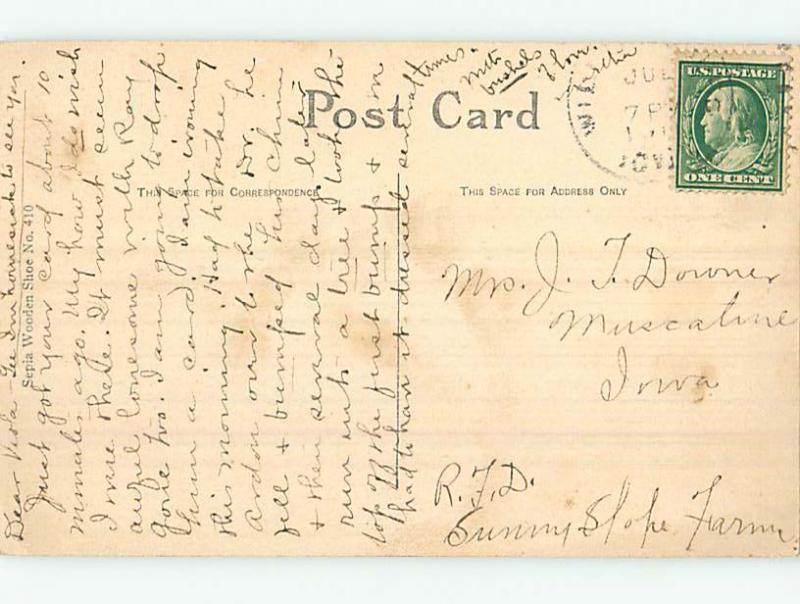 Post Card
THIS SPACE FOR CORRESPONDENCE
THIS SPACE FOR ADDRESS ONLY
U.S. POSTAGE
ONE CENT
JUL
7 P
Sepia Wooden Shoe No. 410
Dear Viola - Gee I'm homesick to see you.
Just got your card about 10
minutes ago. My how I do wish
I were there. It must seem
awful lonesome with Ray
gone too. I am going to drop
him a card. I am ironing
this morning. Had to take
Ardon over to the Dr. he
fell & bumped his chin
& then several days later
run into a tree & took the
top off the first bump & we
had to have it dressed several times.
with
bushels
of love.
Mrs. J. T. Downer
Muscatine
Iowa
R.F.D.
Sunny Slope Farm